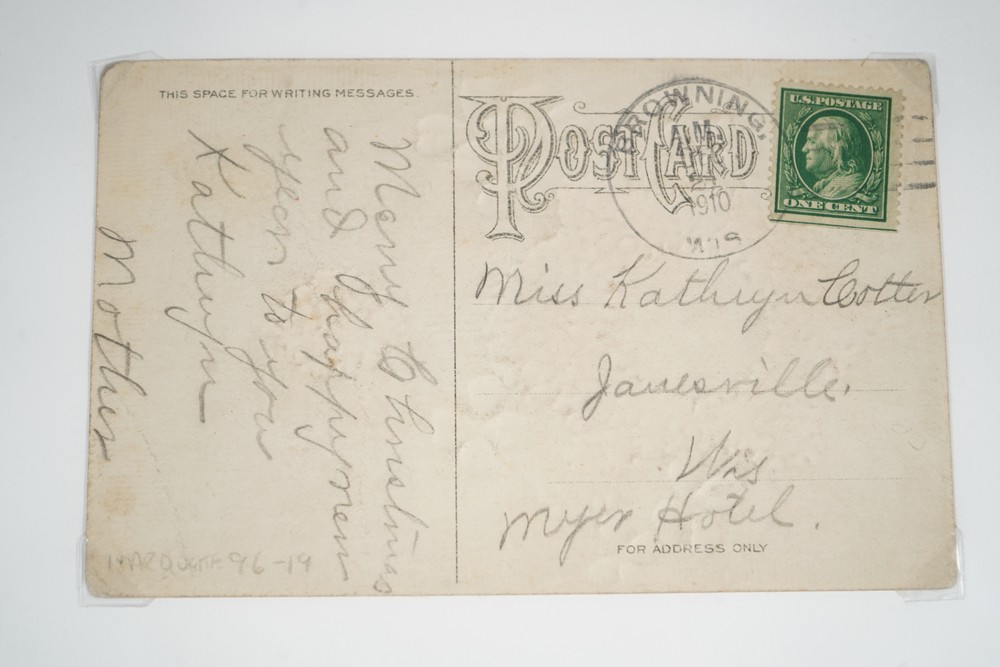 THIS SPACE FOR WRITING MESSAGES.
Merry Christmas
and Happy new
year to you
Kathryn
Mother
POST CARD
BROWNING,
21
1910
U.S. POSTAGE
ONE CENT
Miss Kathryn Cotter
Janesville.
Wis
Myer Hotel.
FOR ADDRESS ONLY
96-19